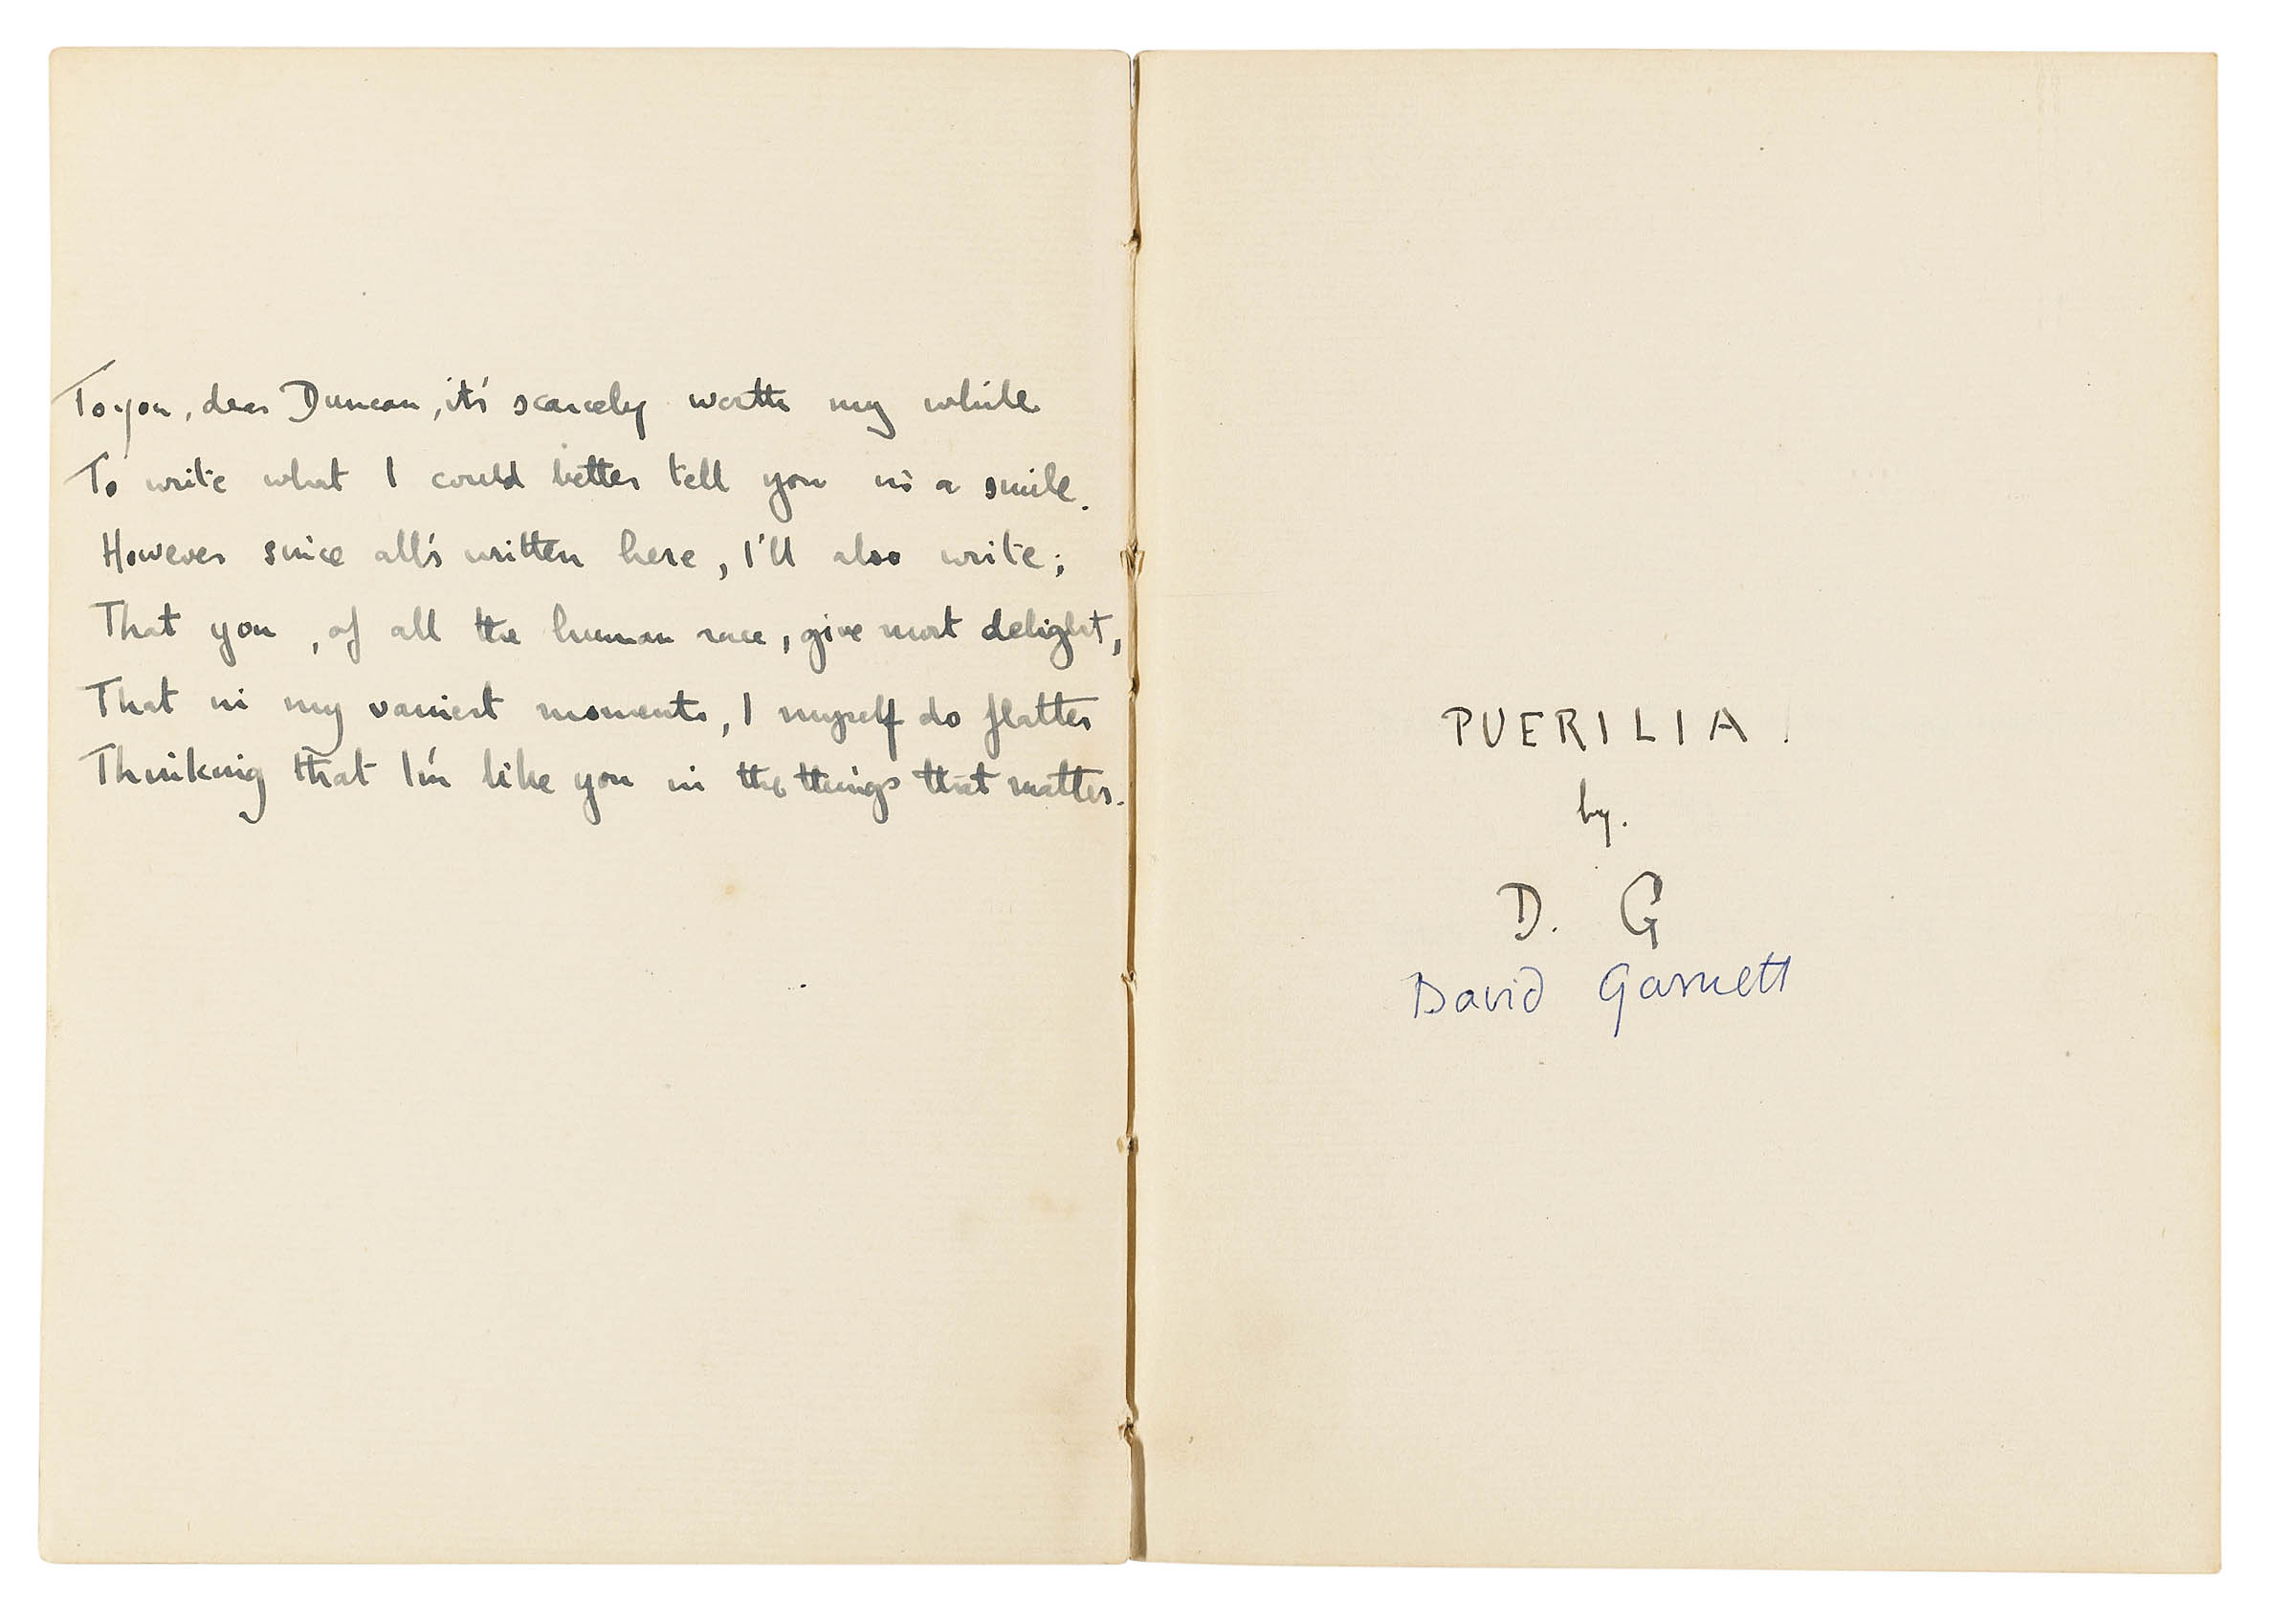 To you, dear Duncan, it's scarcely worth my while
To write what I could better tell you in a smile.
However since all's written here, I'll also write;
That you, of all the human race, give most delight,
That in my vainest moments, I myself do flatter
Thinking that I'm like you in the things that matter.
PUERILIA.
by.
D. G
David Garnett